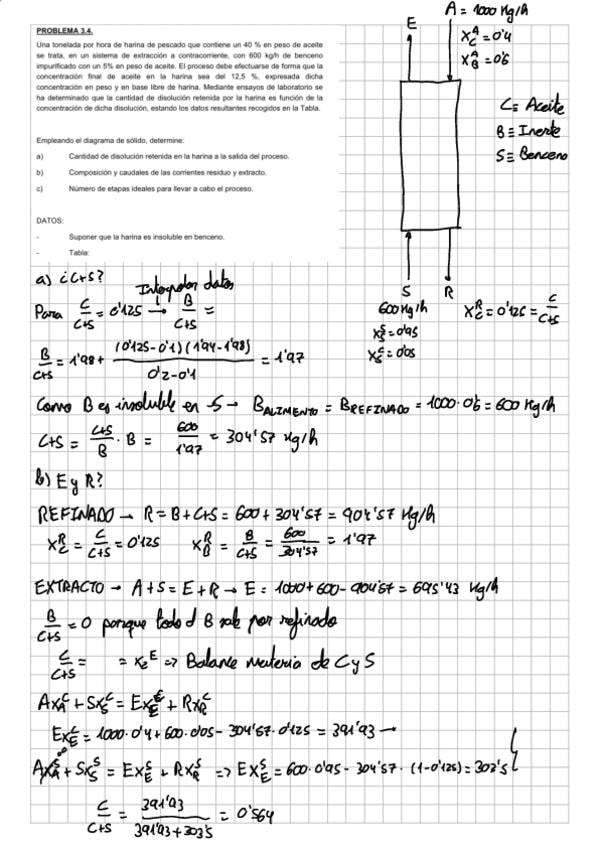 PROBLEMA 3.4.
Una tonelada por hora de harina de pescado que contiene un 40 % en peso de aceite
se trata, en un sistema de extracción a contracorriente, con 600 kg/h de benceno
impurificado con un 5% en peso de aceite. El proceso debe efectuarse de forma que la
concentración final de aceite en la harina sea del 12,5 %, expresada dicha
concentración en peso y en base libre de harina. Mediante ensayos de laboratorio se
ha determinado que la cantidad de disolución retenida por la harina es función de la
concentración de dicha disolución, estando los datos resultantes recogidos en la Tabla.
Empleando el diagrama de sólido, determine:
a) Cantidad de disolución retenida en la harina a la salida del proceso.
b) Composición y caudales de las corrientes residuo y extracto.
c) Número de etapas ideales para llevar a cabo el proceso.
DATOS:
- Suponer que la harina es insoluble en benceno.
- Tabla:
E
A = 1000 Kg/h
X_C^A = 0'4
X_B^A = 0'6
C ≡ Aceite
B ≡ Inerte
S ≡ Benceno
S R
600 Kg/h
X_S^S = 0'95
X_S^C = 0'05
X_C^R = 0'125 = C/C+S
a) ¿C+S?
Interpolar datos
Para C/C+S = 0'125 → B/C+S =
B/C+S = 1'98 + (0'125-0'1)(1'94-1'98)/0'2-0'1 = 1'97
Como B es insoluble en S → B_ALIMENTO = B_REFINADO = 1000·0'6 = 600 Kg/h
C+S = C+S/B · B = 600/1'97 = 304'57 Kg/h
b) E y R?
REFINADO → R = B+C+S = 600 + 304'57 = 904'57 Kg/h
X_C^R = C/C+S = 0'125 X_B^R = B/C+S = 600/304'57 = 1'97
EXTRACTO → A+S = E+R → E = 1000+600-904'57 = 695'43 Kg/h
B/C+S = 0 porque todo el B sale por refinado
C/C+S = = X_C^E => Balance materia de C y S
AX_A^C + SX_S^C = EX_E^C + RX_R^C
EX_E^C = 1000·0'4 + 600·0'05 - 304'57·0'125 = 391'93 →
AX_A^S + SX_S^S = EX_E^S + RX_R^S => EX_E^S = 600·0'95 - 304'57·(1-0'125) = 303'5
C/C+S = 391'93/391'93+303'5 = 0'564